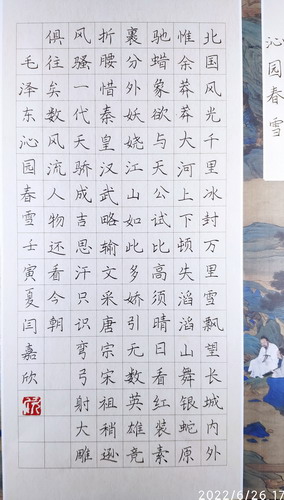 沁园春雪
北国风光千里冰封万里雪飘望长城内外
惟余莽莽大河上下顿失滔滔山舞银蛇原
驰蜡象欲与天公试比高须晴日看红装素
裹分外妖娆江山如此多娇引无数英雄竞
折腰惜秦皇汉武略输文采唐宗宋祖稍逊
风骚一代天骄成吉思汗只识弯弓射大雕
俱往矣数风流人物还看今朝
毛泽东沁园春雪壬寅夏闫嘉欣
2022/6/26 17